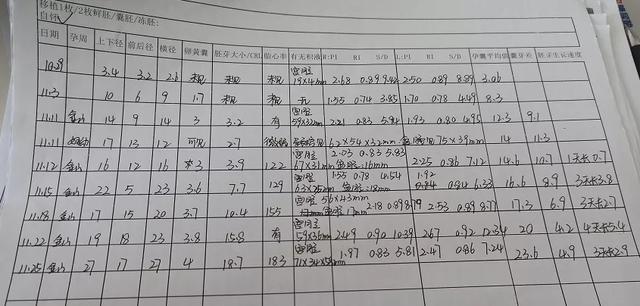 移植1枚/2枚鲜胚/囊胚/冻胚:
自怀
日期 孕周 上下径 前后径 横径 卵黄囊 胚芽大小/CRL 胎心率 有无积液 R:PI RI S/D L:PI RI S/D 孕囊平均值 孕囊芽差 胚芽生长速度
10.29 3.4 3.2 2.6 未见 未见 未见 宫腔 19×4mm 2.68 0.89 9.42 2.50 0.89 8.89 3.06
11.3 10 6 9 1.7 未见 未见 无 1.55 0.74 3.85 1.70 0.78 4.49 8.3
11.11 14 9 14 3 3.2 有 宫腔 59×32mm 2.21 0.83 5.94 1.93 0.80 4.95 12.3 9.1
11.11 17 13 12 可见 2.7 62×54×32mm 75×39mm 14 11.3
11.12 16 12 16 3 3.9 122 宫腔 67×31mm 2.03 0.83 5.83 2.25 0.86 7.12 14.6 10.7 1天长0.7
11.15 22 5 23 3.6 7.7 129 宫腔 63×25mm 18mm 1.55 0.78 4.54 1.92 0.84 6.33 16.6 8.9 3天长3.8
11.18 17 15 20 3.7 10.4 155 宫腔 56×43mm 17mm 2.18 0.89 8.79 2.53 0.89 8.77 17.3 6.9 3天长2.7
11.22 19 18 23 3.8 15.8 有 宫腔 59×36mm 2.49 0.90 10.39 2.67 0.92 12.34 20 4.2 4天长5.4
11.25 27 17 27 4 18.7 183 宫腔 71×34×58mm 1.97 0.83 5.81 2.47 0.86 7.24 23.6 4.9 3天长2.9